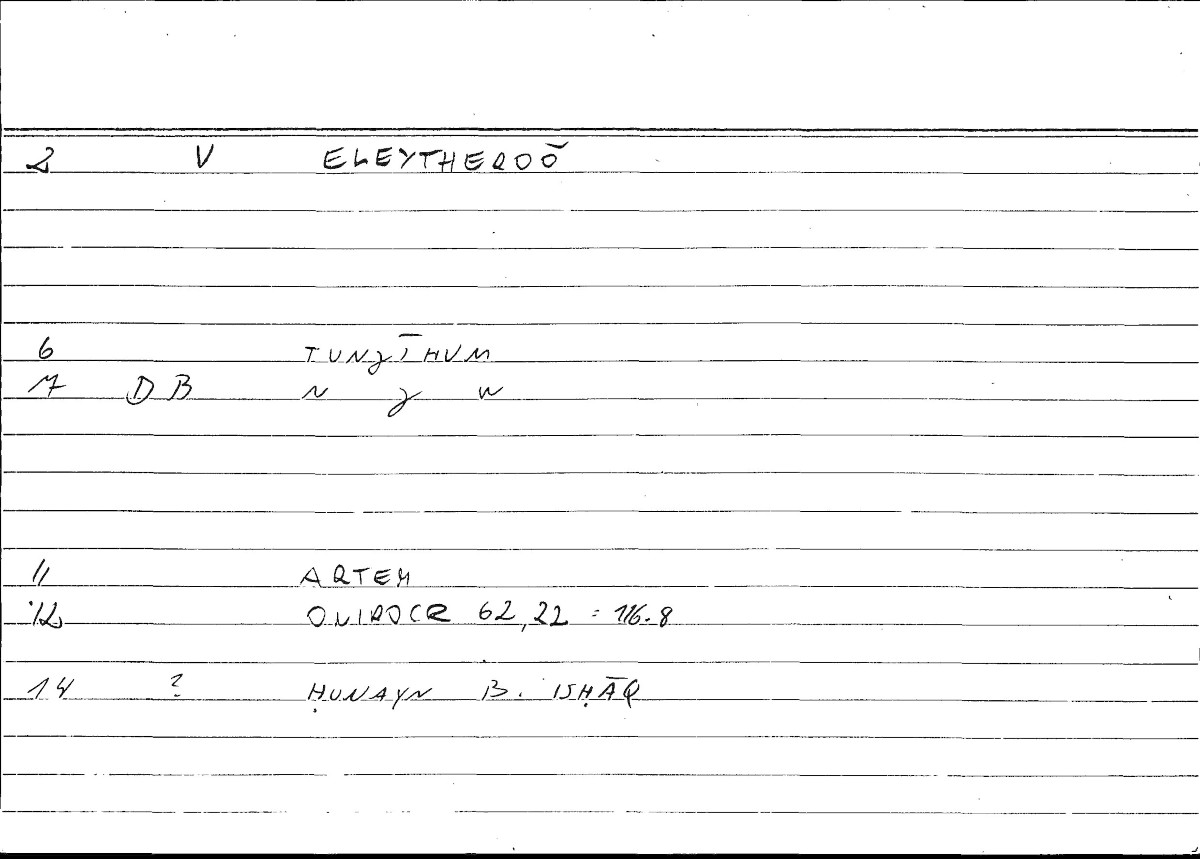 2 V ELEYTHEROŌ
6 TUNǧĪHUM
7 DB N ǧ W
11 ARTEM
12 ONIROCR 62,22 = 116.8
14 ? ḤUNAYN B. ISḤĀQ